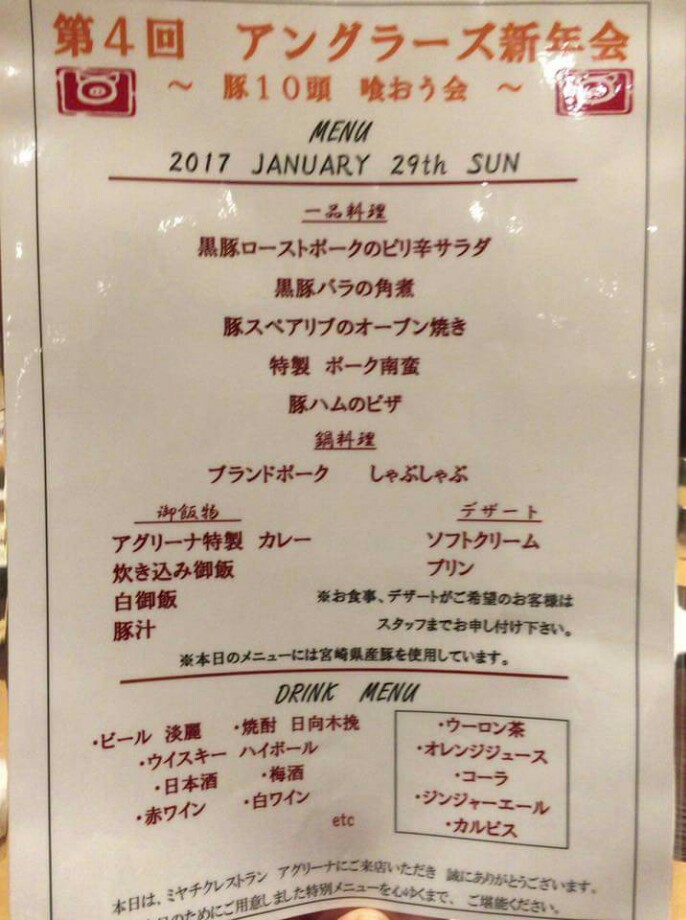 第4回 アングラーズ新年会
～ 豚10頭 喰おう会 ～
MENU
2017 JANUARY 29th SUN
一品料理
黒豚ローストポークのピリ辛サラダ
黒豚バラの角煮
豚スペアリブのオーブン焼き
特製 ポーク南蛮
豚ハムのピザ
鍋料理
ブランドポーク しゃぶしゃぶ
御飯物
アグリーナ特製 カレー
炊き込み御飯
白御飯
豚汁
デザート
ソフトクリーム
プリン
※お食事、デザートがご希望のお客様は
スタッフまでお申し付け下さい。
※本日のメニューには宮崎県産豚を使用しています。
DRINK MENU
・ビール 淡麗 ・焼酎 日向木挽
・ウイスキー ハイボール
・日本酒 ・梅酒
・赤ワイン ・白ワイン
etc
・ウーロン茶
・オレンジジュース
・コーラ
・ジンジャーエール
・カルピス
本日は、ミヤチクレストラン アグリーナにご来店いただき 誠にありがとうございます。
のためにご用意しました特別メニューを心ゆくまで、ご堪能ください。